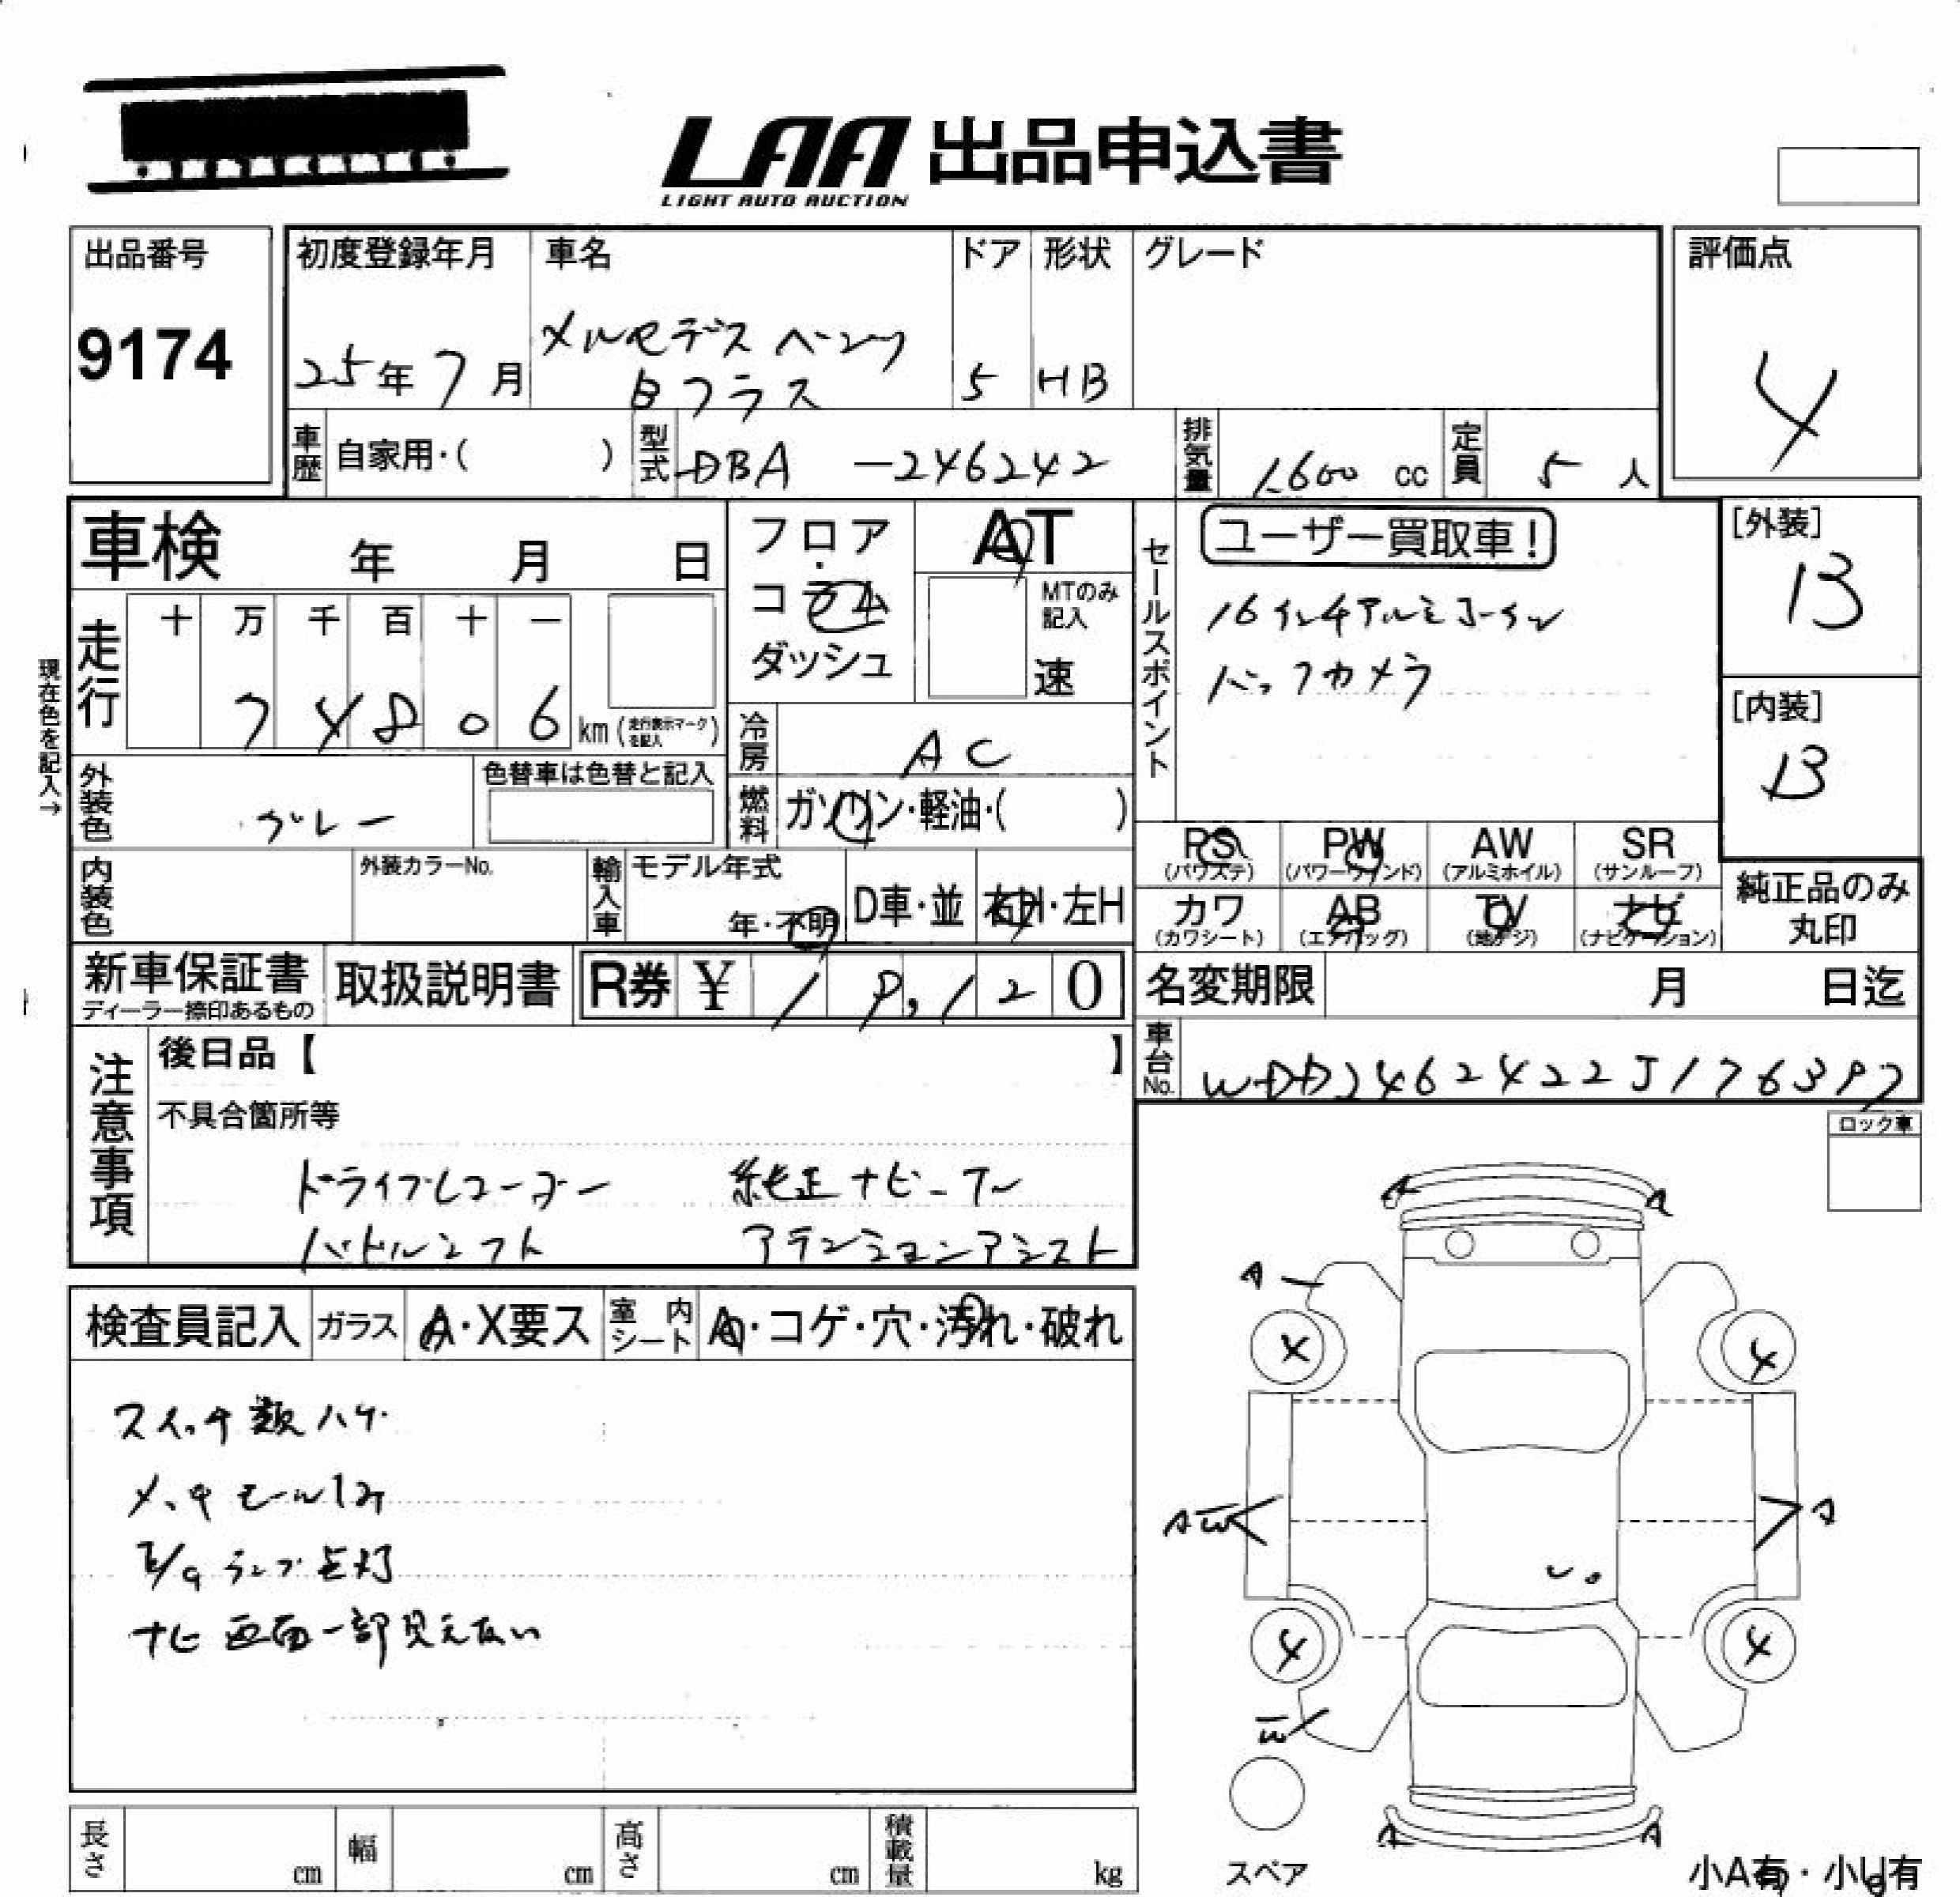 LAA 出品申込書
LIGHT AUTO AUCTION
出品番号
9174
初度登録年月
25年7月
車名
メルセデス ベンツ
Bクラス
ドア
5
形状
HB
グレード
評価点
4
車歴 自家用・( )
型式 DBA -246242
排気量 1.600 cc
定員 5 人
車検 年 月 日
フロア
コラム
ダッシュ
AT
MTのみ
記入
速
セールスポイント
ユーザー買取車!
16インチアルミ
バックカメラ
[外装]
B
[内装]
B
現在色を記入→
走行
十 万 千 百 十 一
7 4 8 0 6 km (走行表示マークを記入)
冷房 AC
外装色 グレー
色替車は色替と記入
燃料 ガソリン・軽油・( )
内装色
外装カラーNo.
輸入車
モデル年式
年・不明
D車・並
右H・左H
PS (パワステ)
PW (パワーウィンド)
AW (アルミホイル)
SR (サンルーフ)
カワ (カワシート)
AB (エアバッグ)
TV (地デジ)
ナビ (ナビゲーション)
純正品のみ
丸印
新車保証書
ディーラー捺印あるもの
取扱説明書
R券 ¥ 1 0
名変期限 月 日迄
車台No. WDD2462422J176397
注意事項
後日品【 】
不具合箇所等
ドライブレコーダー 純正ナビ
パドルシフト アテンションアシスト
ロック車
検査員記入
ガラス A・X要ス
室内シート A・コゲ・穴・汚れ・破れ
スイッチ数ハゲ
メッキモール
E/gランプ点灯
ナビ画面一部見えない
A A
A
4 4
AW A
4 4
W
A A
スペア
長さ cm
幅 cm
高さ cm
積載量 kg
小A有・小U有